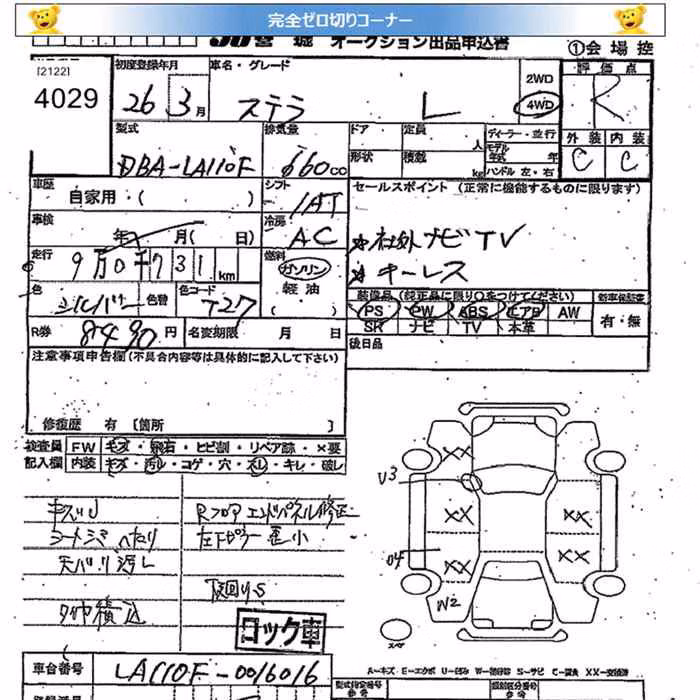 完全ゼロ切りコーナー
JU宮城 オークション出品申込書
①会場控
[2122]
4029
初度登録年月
26年3月
車名・グレード
ステラ L
2WD
4WD
評価点
R
型式
DBA-LA110F
排気量
660cc
ドア
定員
人
ディーラー・並行
モデル年式 年
形状
積数
kg
ハンドル 左・右
外装
内装
C
C
車歴
自家用・( )
シフト
IAT
セールスポイント (正常に機能するものに限ります)
車検
年 月( 日)
冷房
AC
★社外ナビTV
★キーレス
走行
9万0千731km
燃料
ガソリン
軽油
( )
色
シルバー
色替
色コード
T27
装備品 (純正品に限り○をつけてください)
新車保証書
PS PW ABS エアB AW
SR ナビ TV 本革
有・無
R券
8490円
名変期限 月 日
後日品
注意事項申告欄(不具合内容等は具体的に記入して下さい)
修復歴 有 [箇所 ]
検査員記入欄
FW キズ・飛石・ヒビ割・リペア跡・×要
内装 キズ・汚れ・コゲ・穴・スレ・キレ・破レ
キズU
シートシミ へたり
天バリ汚レ
タイヤ積込
Rフロア エンドパネル修正
左下ピラー歪小
下回りS
U3
XX
XX
XX
XX
XX
04
W2
スペア
コック車
A-キズ E-エクボ U-凹み W-補修跡 S-サビ C-腐食 XX-交換済
車台番号
LA110F-0016016
型式指定番号
類別区分番号
登録番号